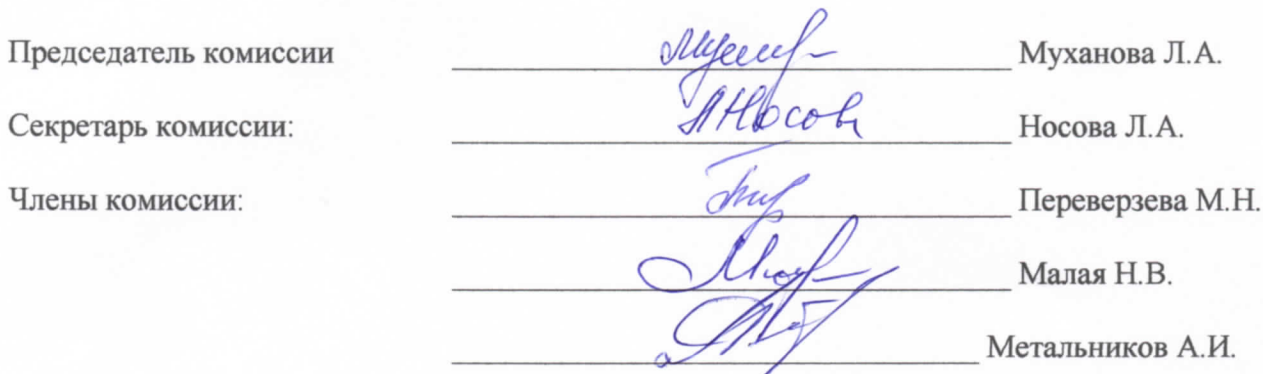 Председатель комиссии Муханова Л.А.
Секретарь комиссии: ЛНосова Носова Л.А.
Члены комиссии: Переверзева М.Н.
Малая Н.В.
Метальников А.И.